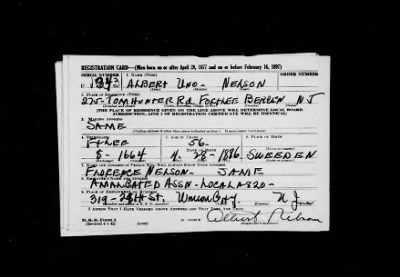 REGISTRATION CARD—(Men born on or after April 28, 1877 and on or before February 16, 1897)
SERIAL NUMBER 1. NAME (Print) ORDER NUMBER
U ALBERT UNO- NELSON
2. PLACE OF RESIDENCE (Print)
275-TOM HUNTER RD FORTLEE BERGEN N J
[THE PLACE OF RESIDENCE GIVEN ON THE LINE ABOVE WILL DETERMINE LOCAL BOARD
JURISDICTION; LINE 2 OF REGISTRATION CERTIFICATE WILL BE IDENTICAL]
3. MAILING ADDRESS
SAME
4. TELEPHONE 5. AGE IN YEARS 6. PLACE OF BIRTH
FT LEE 56.
DATE OF BIRTH
8-1664 4. 28- 1886, SWEEDEN
7. NAME AND ADDRESS OF PERSON WHO WILL ALWAYS KNOW YOUR ADDRESS
FLORENCE NELSON- SAME
8. EMPLOYER'S NAME AND ADDRESS
AMALGATED ASSN-LOCAL#820-
9. PLACE OF EMPLOYMENT OR BUSINESS
319- ST. UNION CITY. N J
I AFFIRM THAT I HAVE VERIFIED ABOVE ANSWERS AND THAT THEY ARE TRUE.
D. S. S. Form 1
Albert Nelson